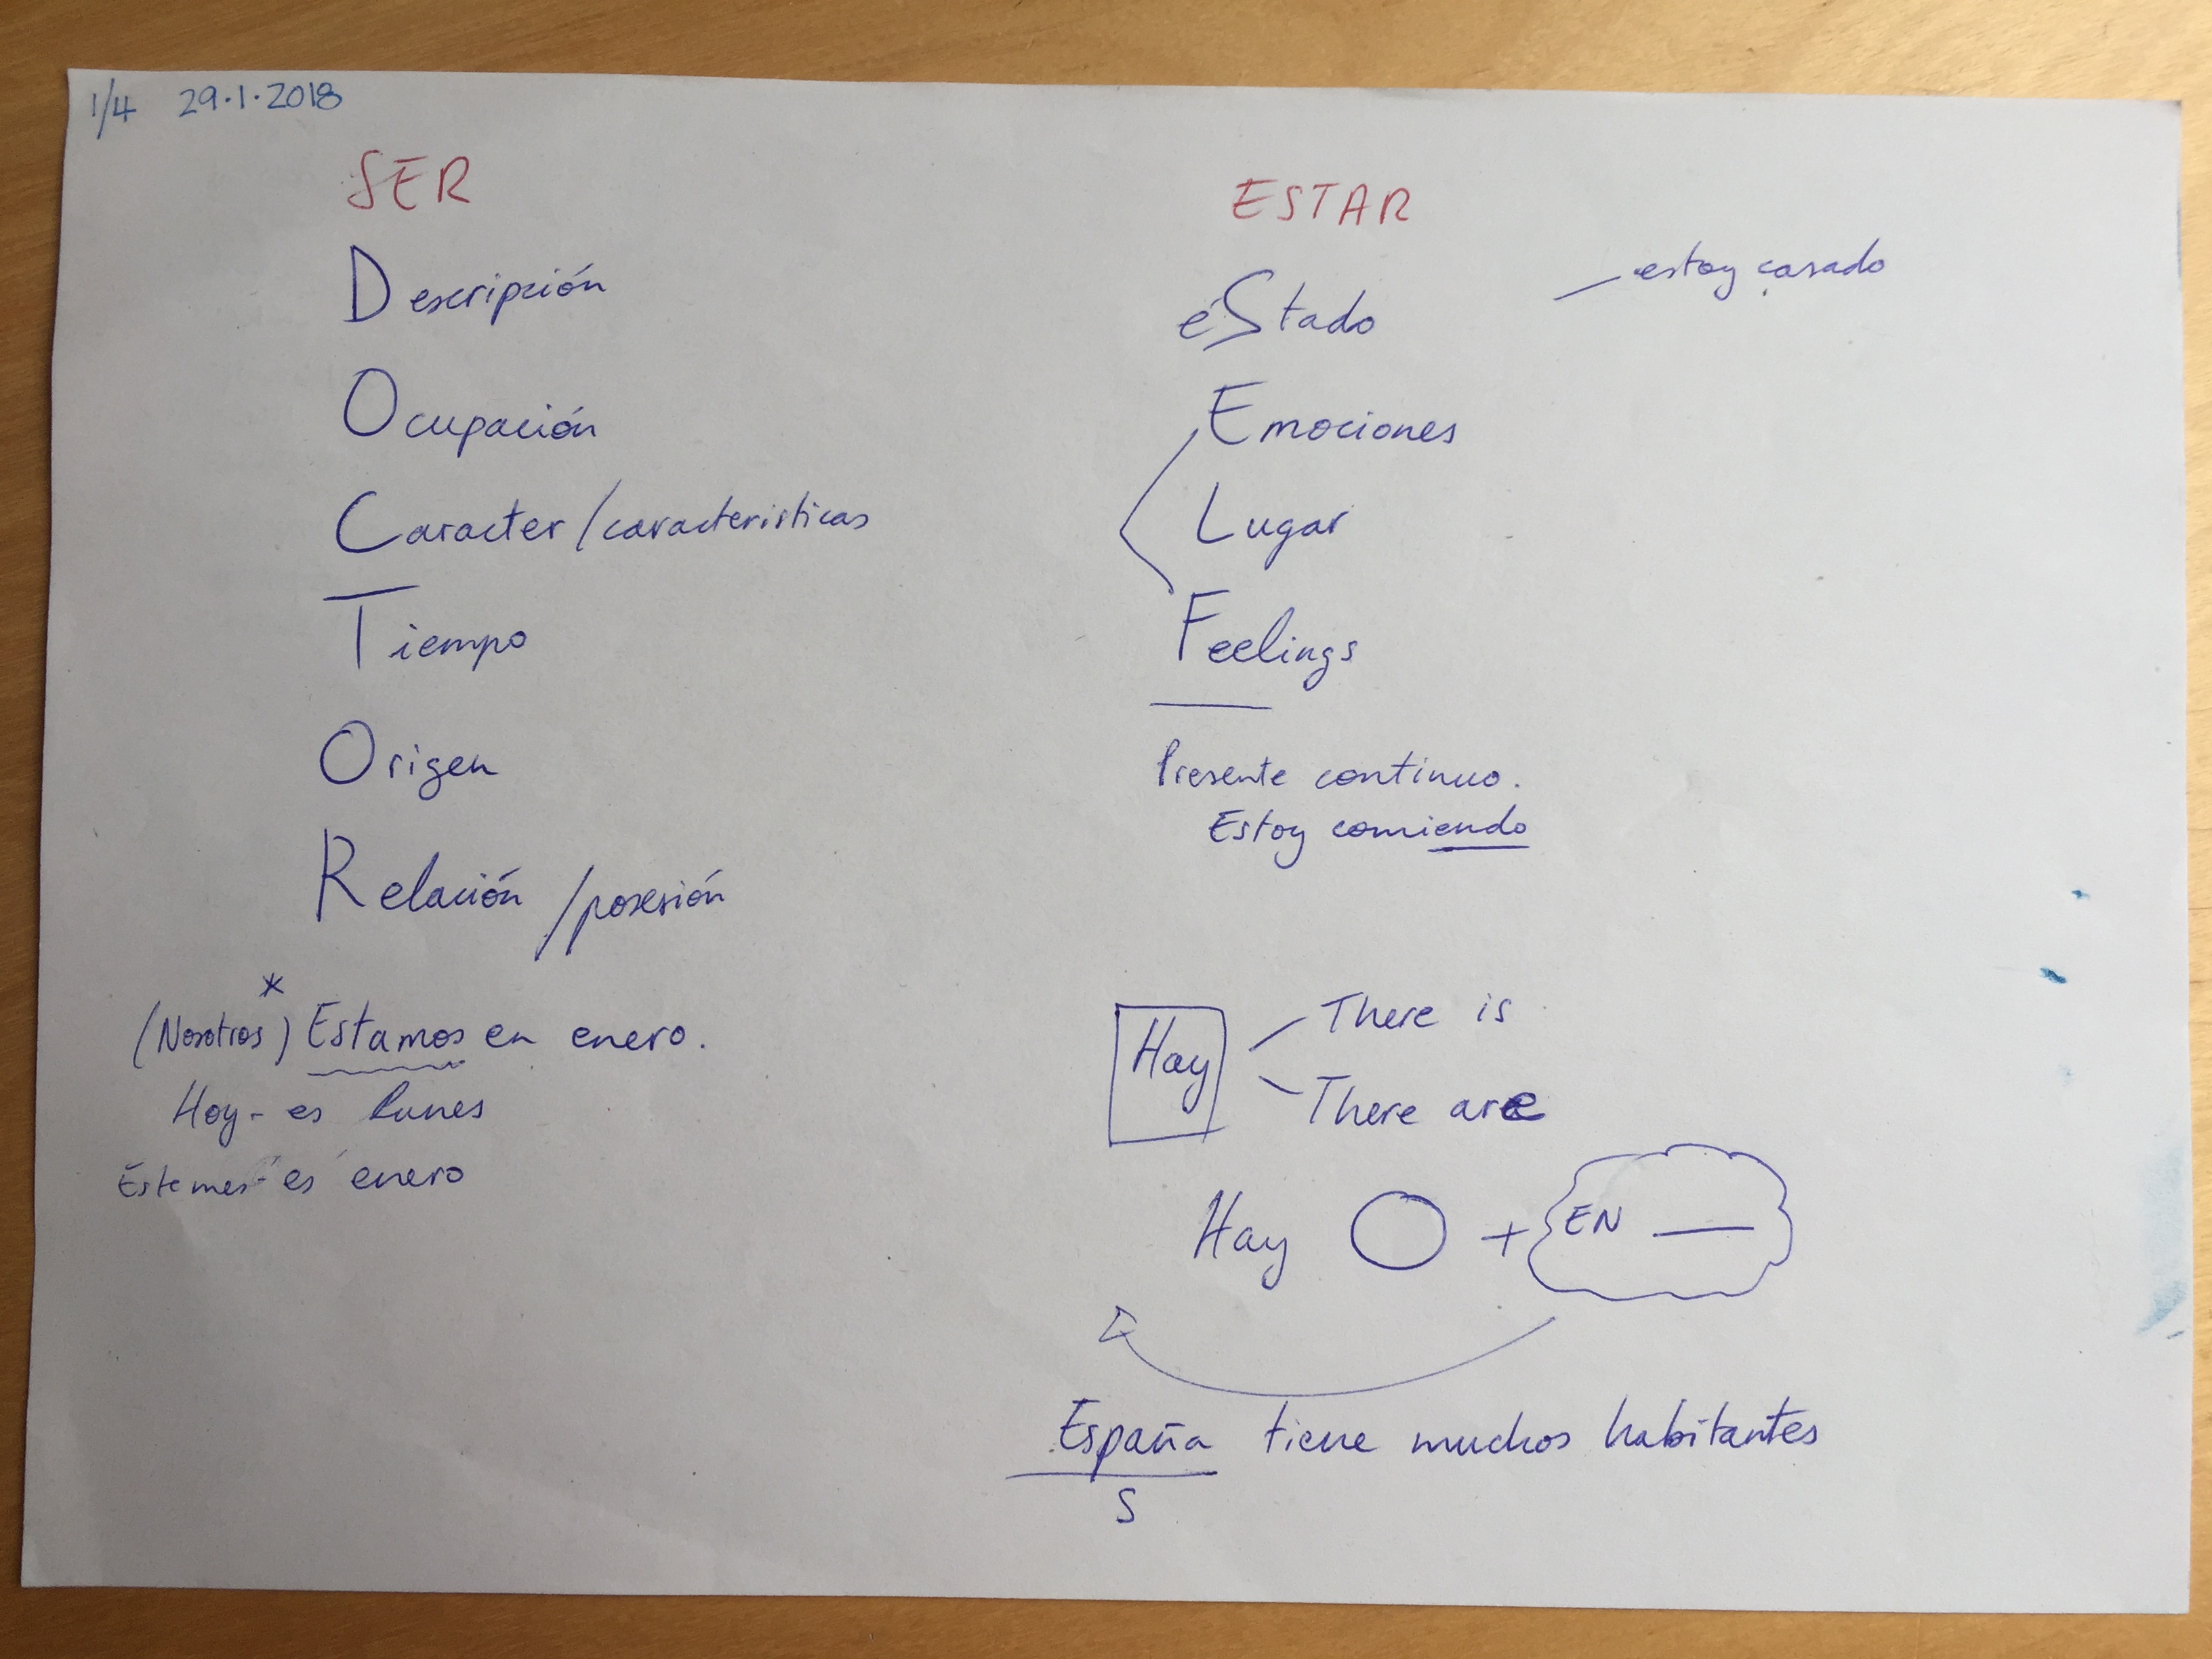 1/4 29.1.2018
SER
Descripción
Ocupación
Caracter/caracteristicas
Tiempo
Origen
Relación/posesión
*
(Nosotros) Estamos en enero.
Hoy - es lunes
Este mes - es enero
ESTAR
eStado - estoy casado
Emociones
Lugar
Feelings
Presente continuo.
Estoy comiendo
Hay
There is
There are
Hay + EN
España tiene muchos habitantes
S